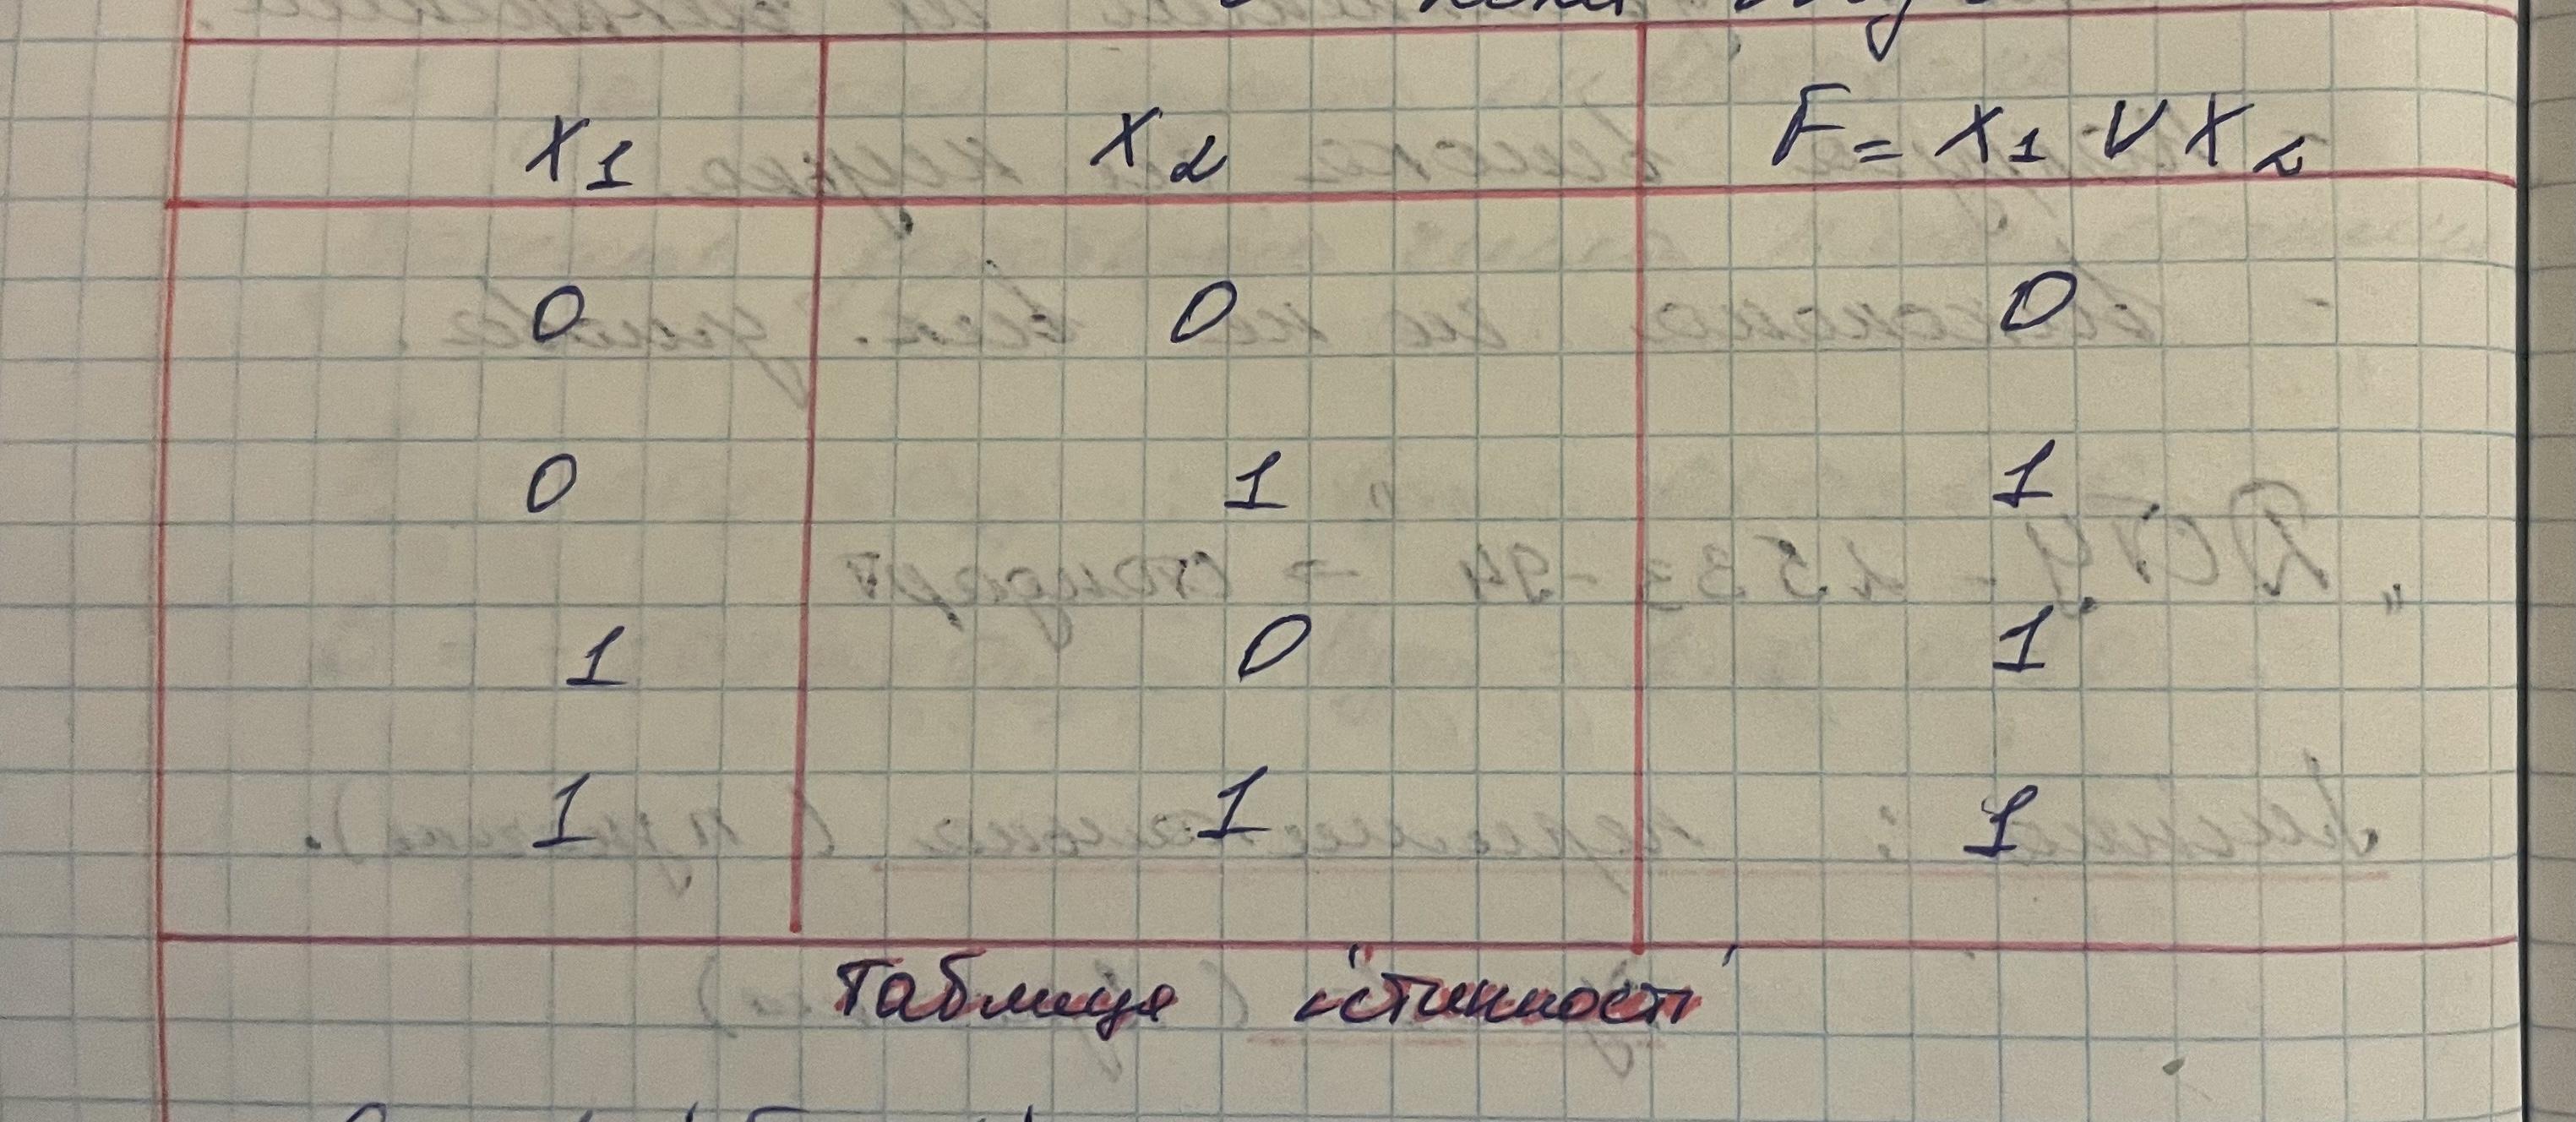 X1 X2 F = X1 V X2
0 0 0
0 1 1
1 0 1
1 1 1
Таблиця істинності